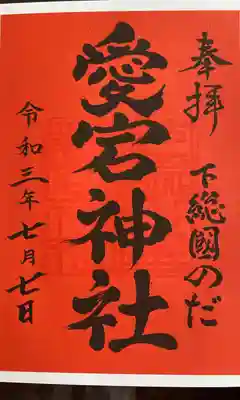 奉拝
下総國のだ
愛宕神社
令和三年七月七日